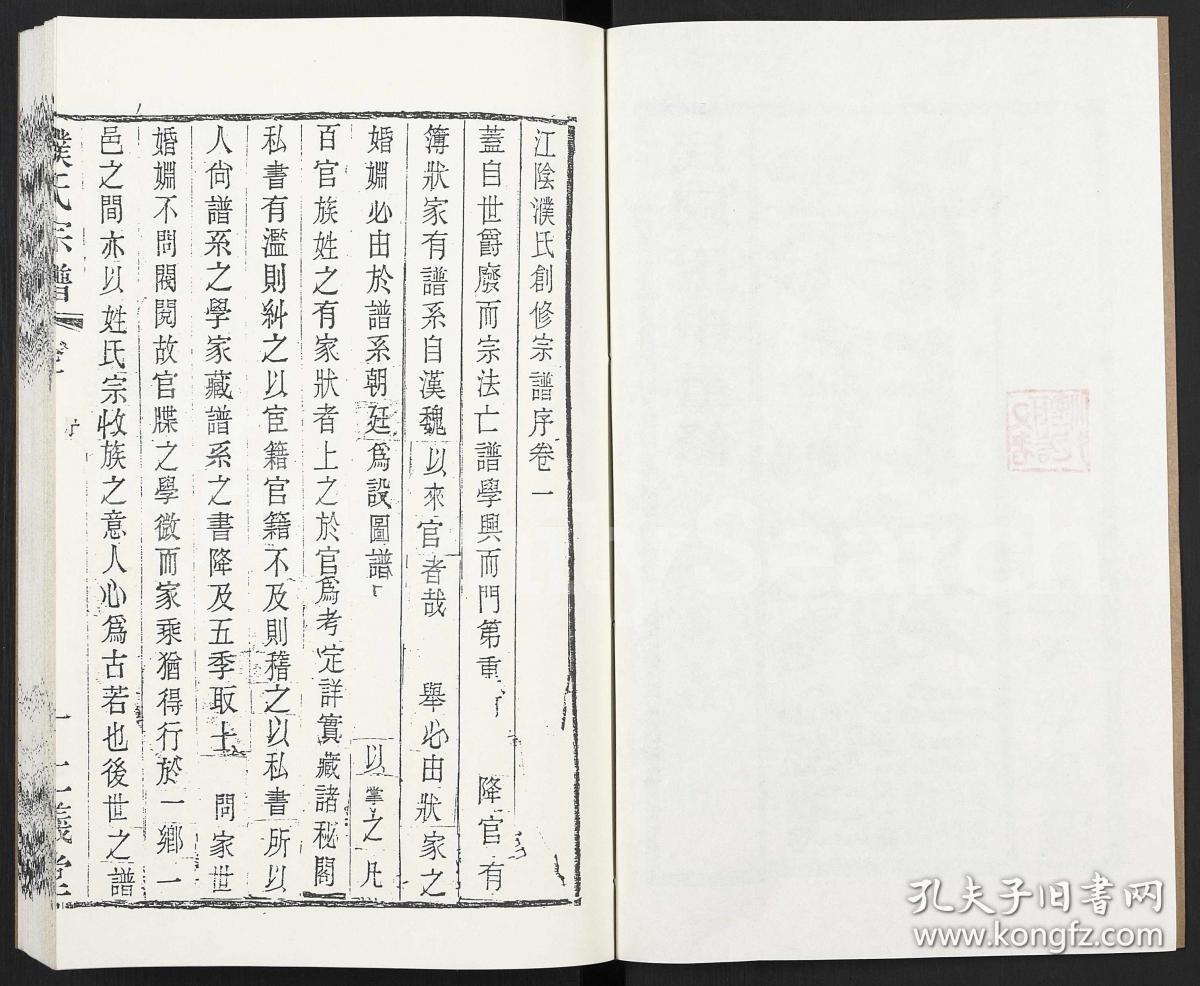 江陰濮氏創修宗譜序卷一
蓋自世爵廢而宗法亡譜學興而門第重 降官有
簿狀家有譜系自漢魏以來官者哉 舉必由狀家之
婚婣必由於譜系朝廷爲設圖譜 以掌之凡
百官族姓之有家狀者上之於官爲考定詳實藏諸秘閣
私書有濫則糾之以宦籍官籍不及則稽之以私書所以
人尙譜系之學家藏譜系之書降及五季取士 問家世
婚婣不問閥閱故官牒之學微而家乘猶得行於一鄉一
邑之間亦以姓氏宗收族之意人心爲古若也後世之譜
濮氏宗譜
孔夫子旧书网
www.kongfz.com